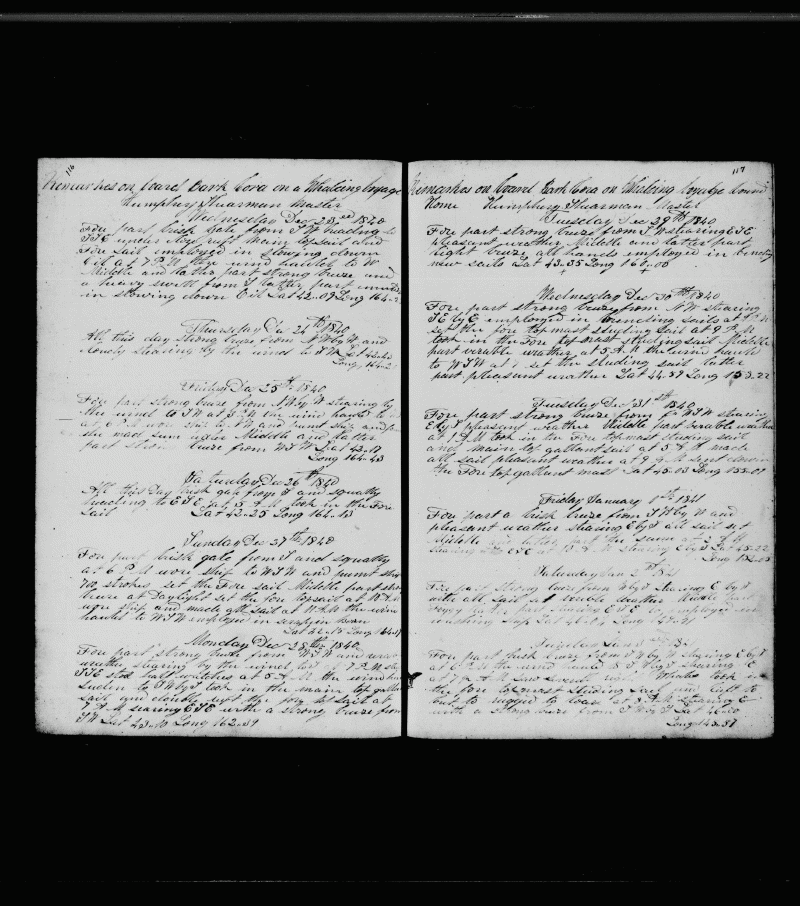 116
Remarks on board Bark Cora on a Whaleing Voyage
Humphrey Shearman Master
Wednesday Dec 23 ed 1840
Fore part brisk gale from S W heading to
S S E under close reft main topsail and
Fore Sail employed in stowing down
Oil at 7 P.M the wind hauled to W
Middle and latter part strong breeze and
a heavy swell from S latter part
in stowing down Oil Lat 42-09 Long 164-2
Thursday Dec 24 th 1840
All this day strong breeze from N W by W and
stearing by the wind to S W Lat
Long 164-2
Friday Dec 25 th 1840
Fore part strong breeze from N W by W stearing by
the wind to S W at 3 P.M the wind hauled to
at 6 P.M wore ship to N W and
Middle and latter
part strong breeze from W S W Lat 43-18
Long 164-43
Saturday Dec 26 th 1840
All this Day brisk gale from S and squally
heading to E S E at 5 A.M took in the Fore
Sail Lat 43-25 Long 164-13
Sunday Dec 27 th 1840
Fore part brisk gale from S and squally
at 6 P.M wore ship to W S W and pumt ship
700 strokes set the Fore sail Middle part strong
breeze at Daylight set the fore topsail at 10 A.M
wore ship and made all sail at 11 A.M the wind
hauled to W S W employed in scraping bone
Long 164-
Monday Dec 28 th 1840
Fore part strong breeze from W S W and
weather stearing by the wind at 7 P.M
S S E at 5 A.M the wind hauled
suden to S W by S took in the main top gallant
sail and
7 A.M stearing E S E with a strong breeze from
S W Lat 43-10 Long 162-39
117
Remarkes on board Bark Cora on Whaleing Voyage bound
Home Humphrey Shearman Master
Tuesday Dec 29 th 1840
Fore part strong breeze from S W stearing E S E
pleasant weather Middle and latter part
light breeze all hands employed in bending
new sails Lat 43-35 Long 160-
Wednesday Dec 30 th 1840
Fore part strong breeze from N W stearing
S E by E employed in bending sails at
set the fore top mast studing sail at 9 P.M
took in the Fore top mast studing sail Middle
part varable weather at 5 A.M the wind hauld
to W S W at 7 set the studing sail latter
part pleasant weather Lat 44-39 Long 158-22
Tuesday Dec 31 st 1840
Fore part strong breeze from W S W stearing
E by S pleasant weather Middle part varable weather
at 1 A.M took in the Fore top mast studing sail
and main top gallant sail at 5 A.M made
all sail pleasant weather at 9 A.M sent down
the Fore top gallant mast Lat 45-03 Long 155-01
Friday January 1 th 1841
Fore part a brisk breeze from S W by W and
pleasant weather stearing E by S all sail set
Middle and latter part the same at 2 A.M
stearing E S E at 10 A.M stearing E by S Lat 45-22
Long 152-
Saturday Jan 2
Fore part strong breeze from W by S stearing E by S
with all sail set varable weather Middle part
part stearing E S E employed in
washing ship Lat
Sunday Jan
Fore part brisk breeze from S W by W stearing E by S
at 6 P.M the wind hauled to S W by S stearing E
at 7 A.M Saw Whales took in
the fore top mast studing sail and
at 8 A.M stearing E
with a strong breeze from S W by S Lat
Long 143-37